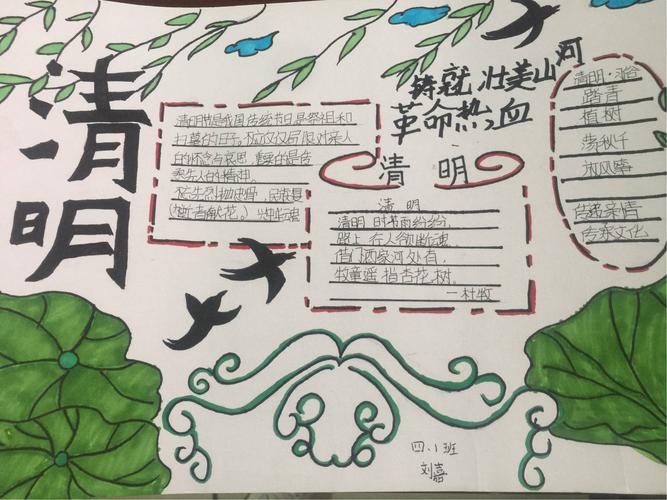 清明
铸就壮美山河
革命热血
清明节是我国传统节日是祭祖和
扫墓的日子。不应仅仅局限对亲人
的怀念与哀思,重要的是传
承先人的精神。
清明
清明
清明时节雨纷纷,
路上行人欲断魂。
借门酒家河处有,
牧童遥指杏花树。
一杜牧
清明·习俗
踏青
植树
荡秋千
放风筝
传承文化
四.1班
刘嘉